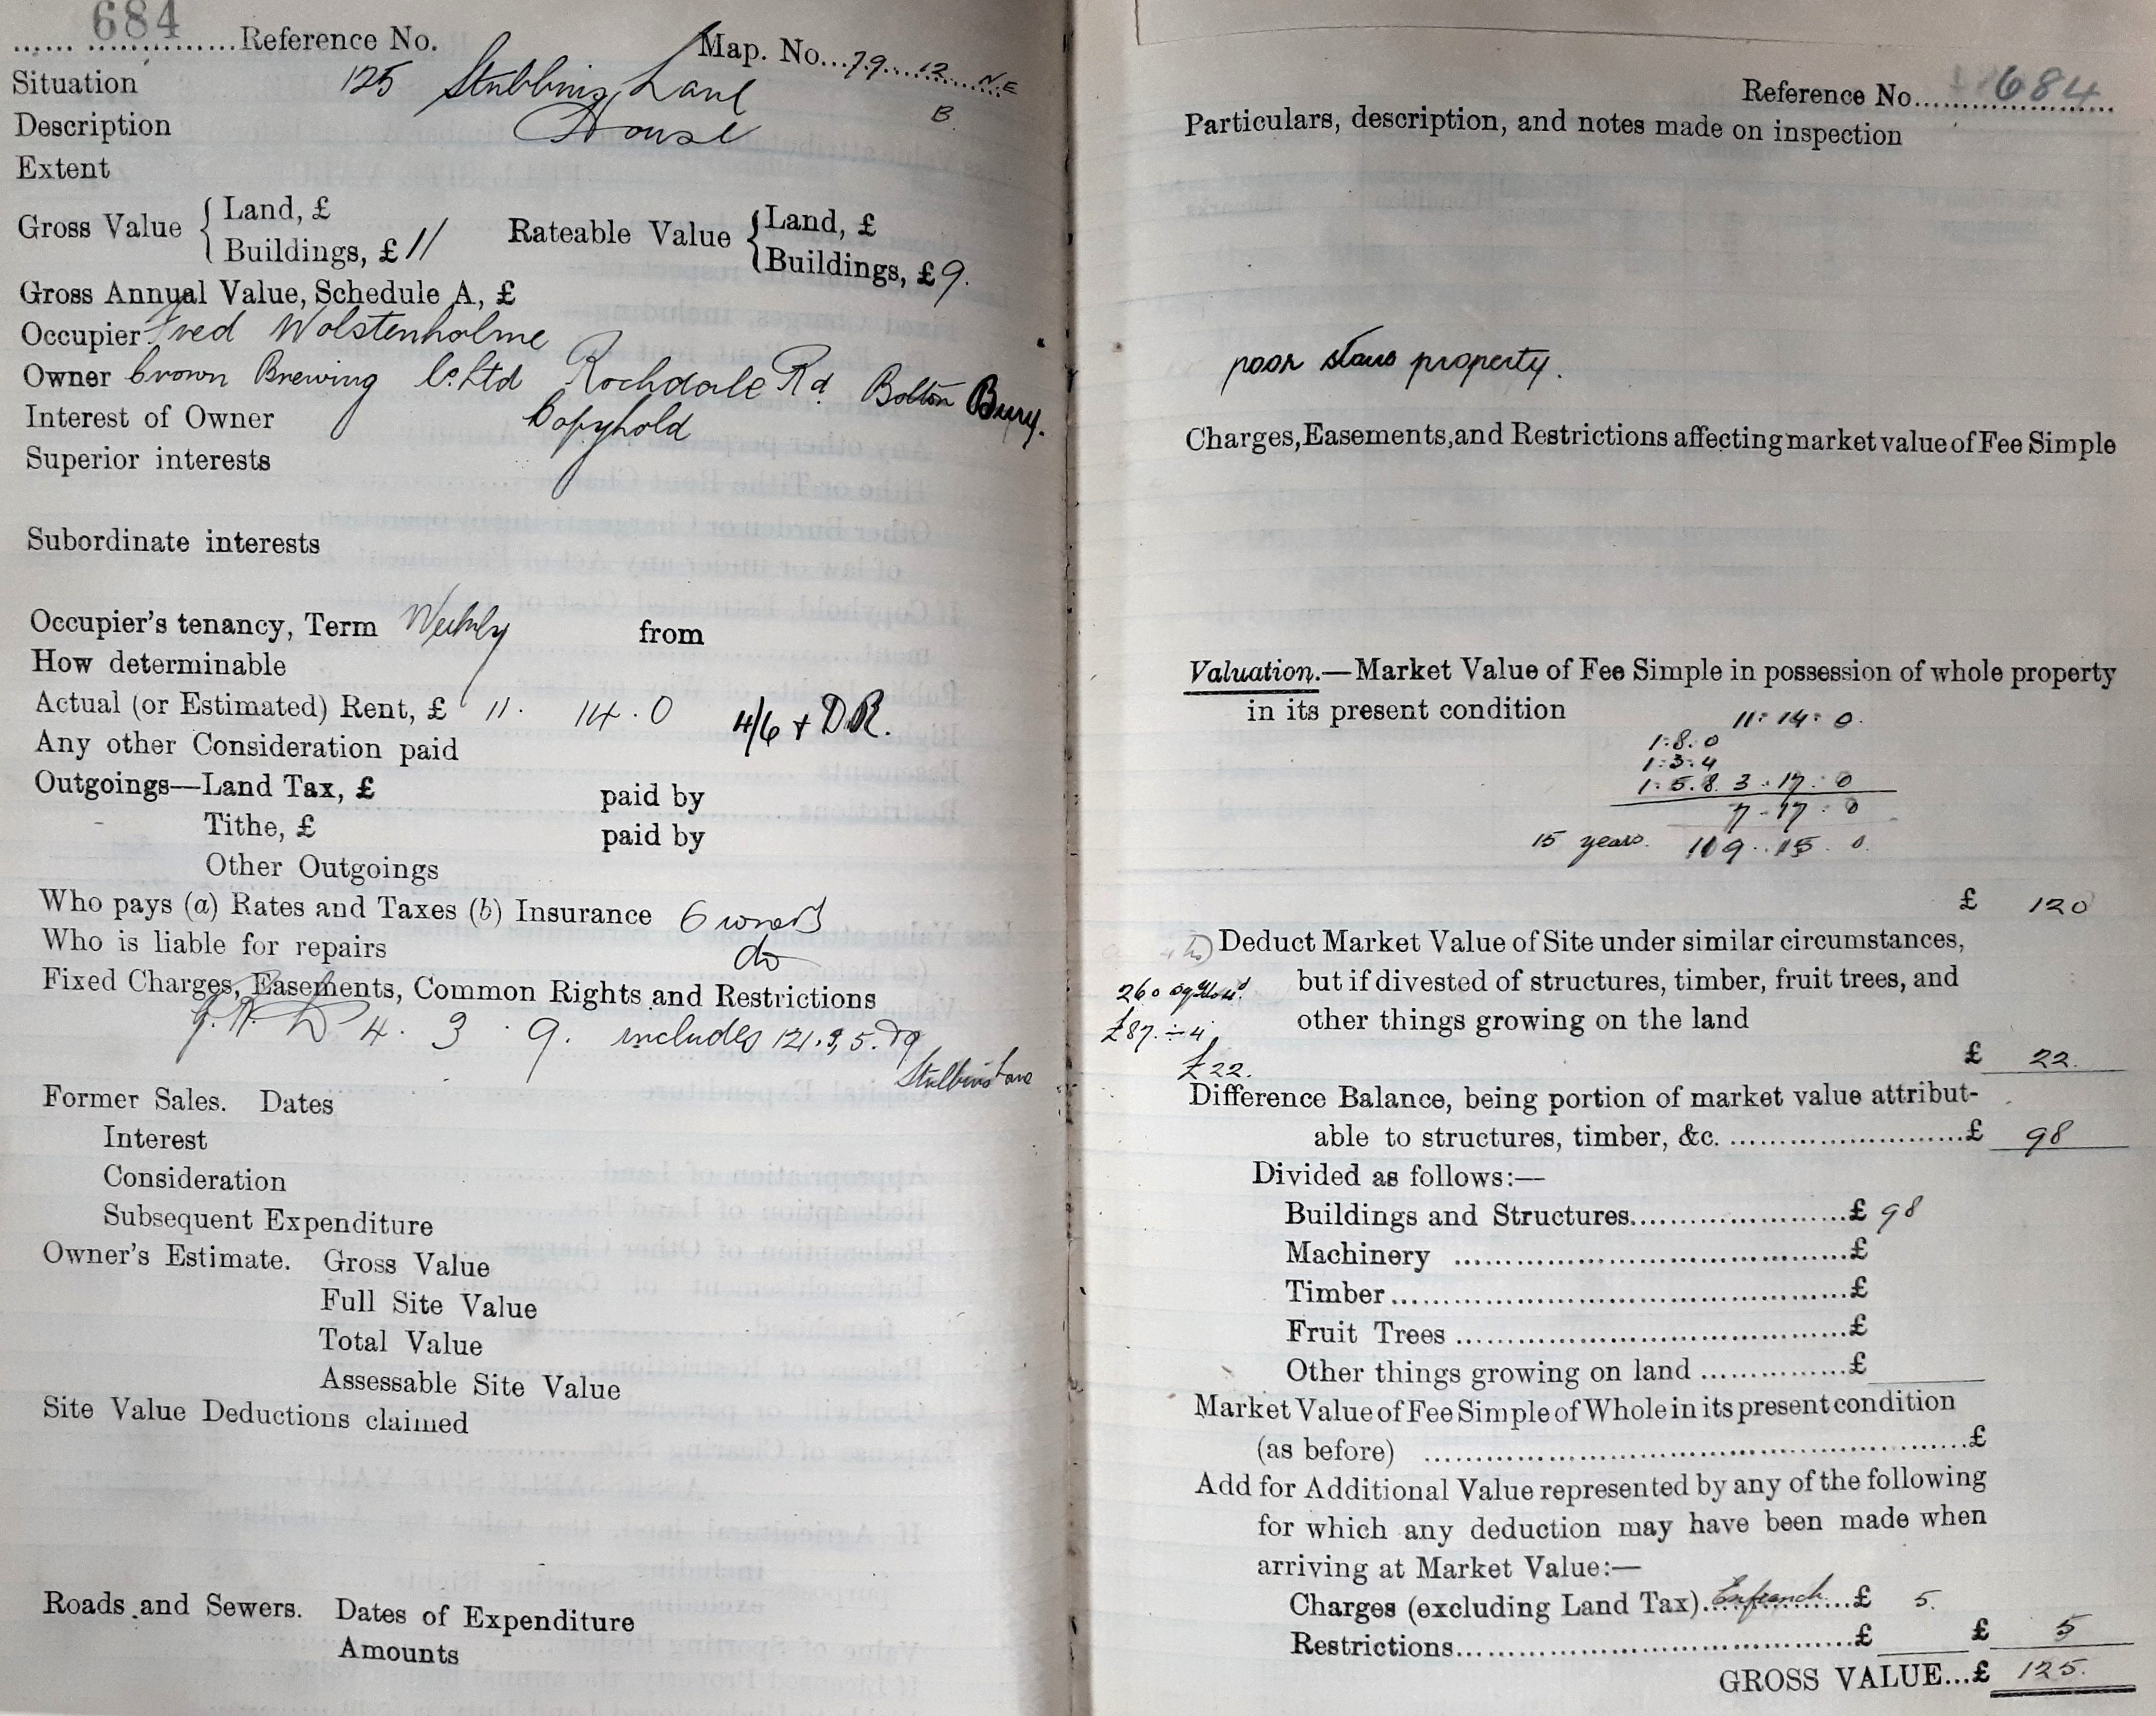 684
Reference No. Map. No...79...12...NE
B.
Situation 125 Stubbins Lane
Description House
Extent
Gross Value { Land, £
Buildings, £ 11/
Rateable Value { Land, £
Buildings, £ 9.
Gross Annual Value, Schedule A, £
Occupier Fred Wolstenholme
Owner Crown Brewing Co Ltd Rochdale Rd Bolton Bury.
Interest of Owner Copyhold
Superior interests
Subordinate interests
Occupier's tenancy, Term Weekly from
How determinable
Actual (or Estimated) Rent, £ 11. 14. 0 4/6 + D.R.
Any other Consideration paid
Outgoings—Land Tax, £ paid by
Tithe, £ paid by
Other Outgoings
Who pays (a) Rates and Taxes (b) Insurance Owners
Who is liable for repairs do
Fixed Charges, Easements, Common Rights and Restrictions
4. 3. 9. includes 121.3,5.79
Stubbins Lane
Former Sales. Dates
Interest
Consideration
Subsequent Expenditure
Owner's Estimate. Gross Value
Full Site Value
Total Value
Assessable Site Value
Site Value Deductions claimed
Roads and Sewers. Dates of Expenditure
Amounts
Reference No. 684
Particulars, description, and notes made on inspection
poor property.
Charges, Easements, and Restrictions affecting market value of Fee Simple
Valuation.—Market Value of Fee Simple in possession of whole property
in its present condition
11: 14: 0.
1.8.0
1.3.4
1.5.8. 3.17.0
7.17.0
15 years. 109..15.0.
£ 120
Deduct Market Value of Site under similar circumstances,
but if divested of structures, timber, fruit trees, and
other things growing on the land
260
£87.÷4
£22.
£ 22.
Difference Balance, being portion of market value attribut-
able to structures, timber, &c. ........................£ 98
Divided as follows:—
Buildings and Structures......................£ 98
Machinery ........................................£
Timber..............................................£
Fruit Trees .......................................£
Other things growing on land ................£
Market Value of Fee Simple of Whole in its present condition
(as before) ......................................................£
Add for Additional Value represented by any of the following
for which any deduction may have been made when
arriving at Market Value:—
Charges (excluding Land Tax) Enfranch. £ 5.
Restrictions........................................£ £ 5
GROSS VALUE...£ 125.